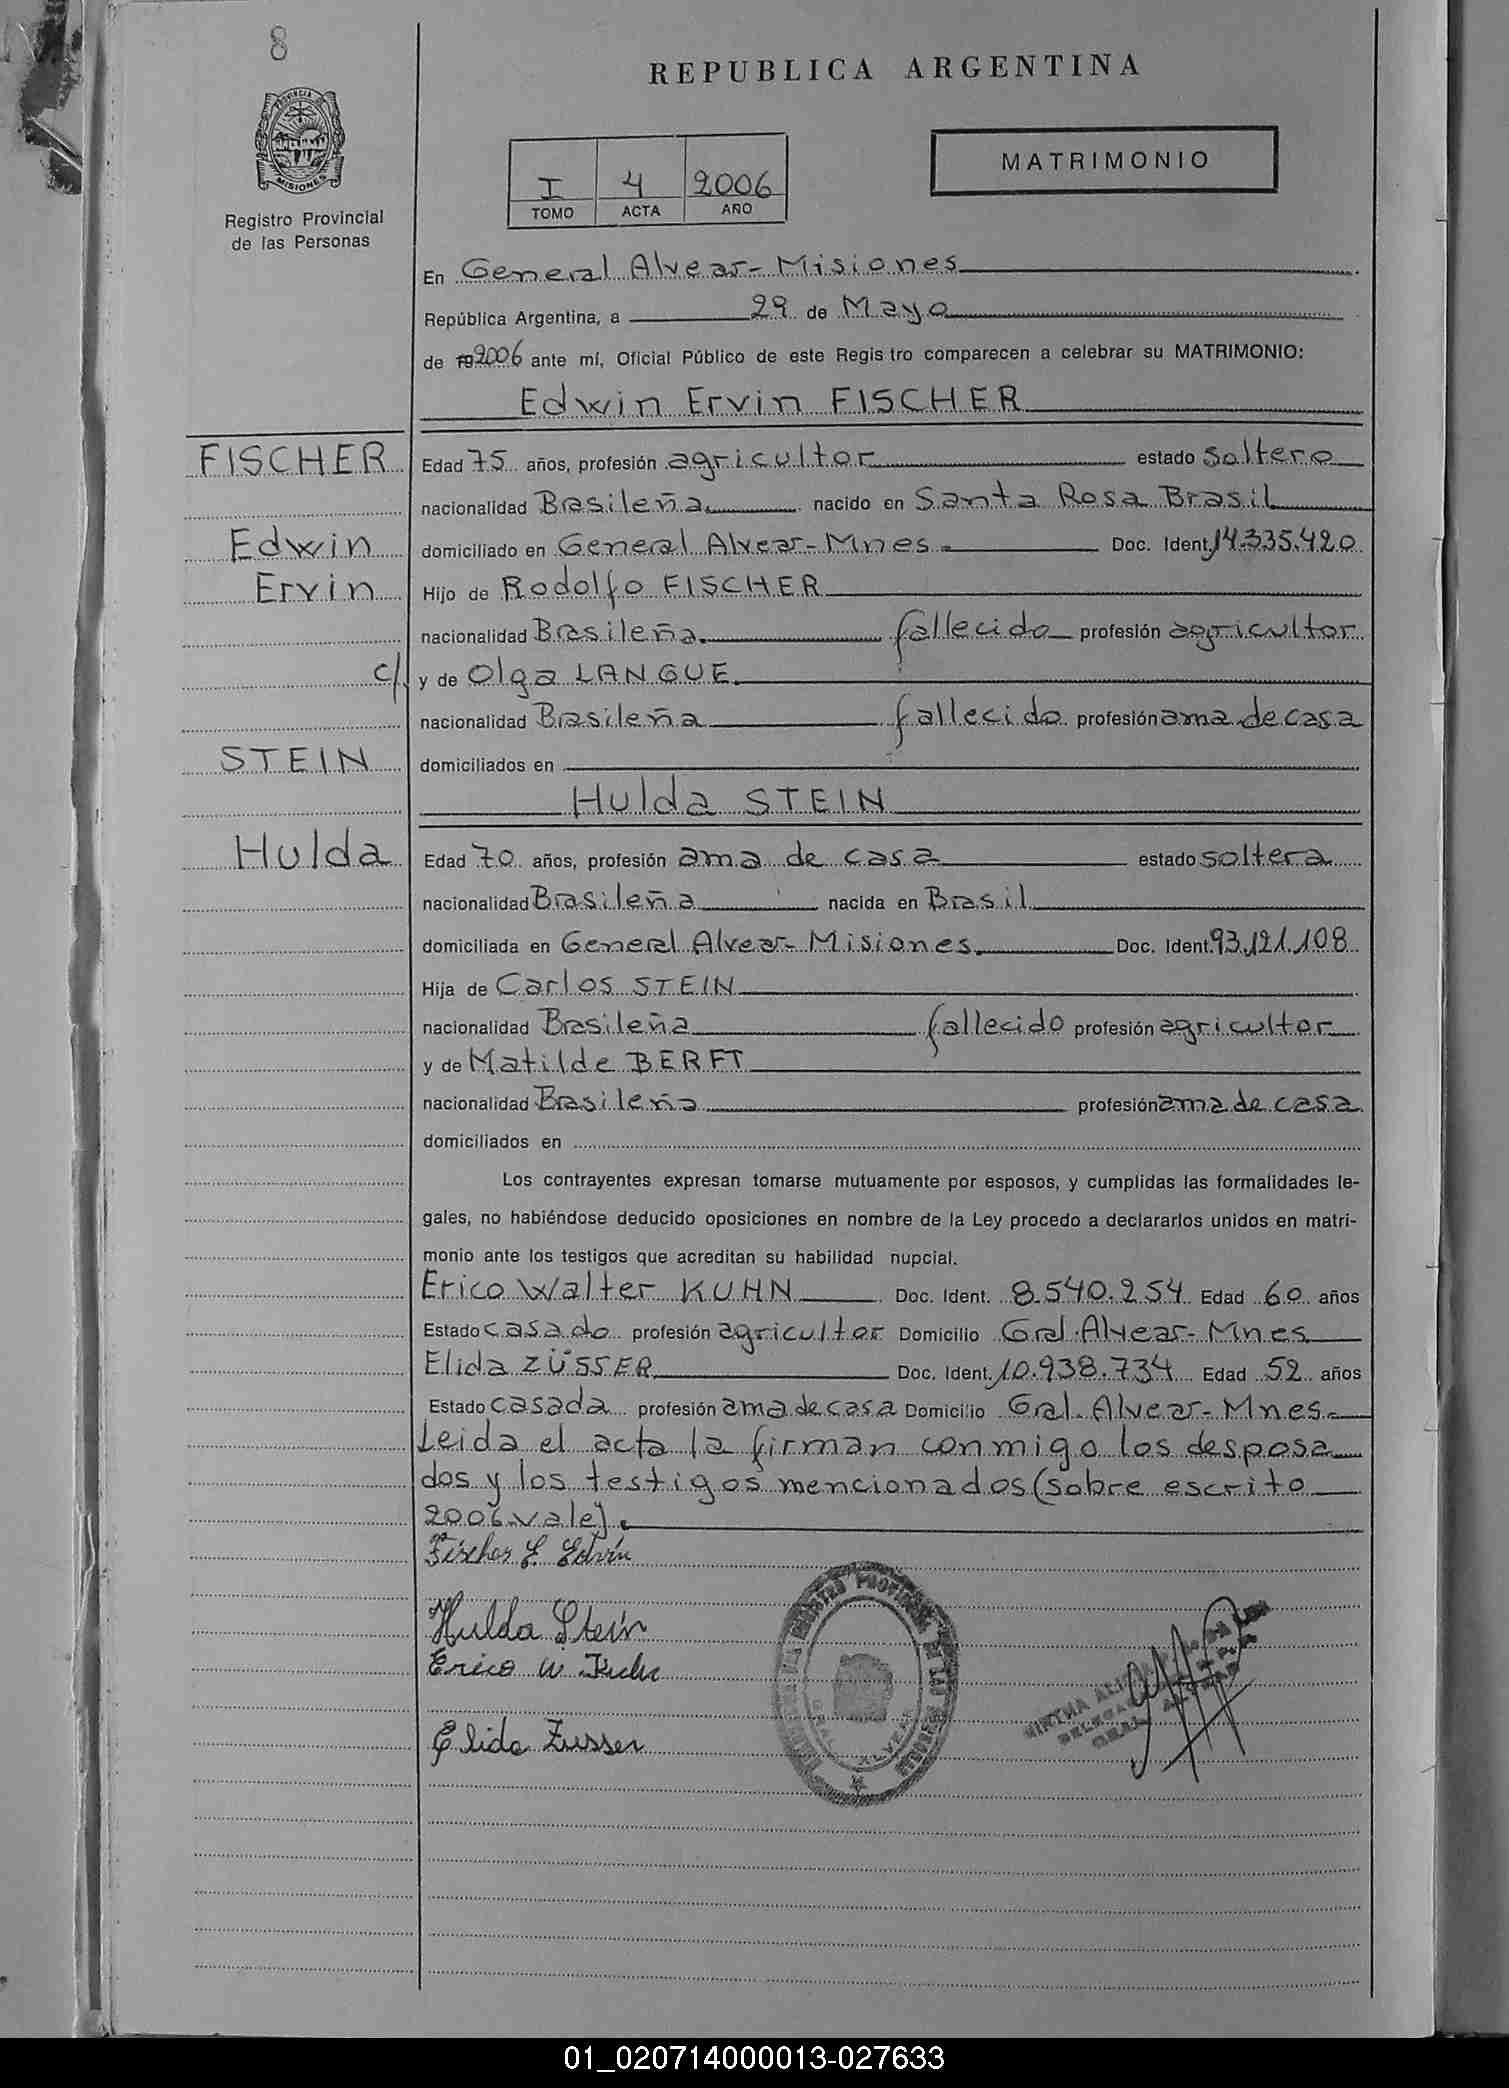 8
REPUBLICA ARGENTINA
PROVINCIA DE
MISIONES
Registro Provincial
de las Personas
I 4 2006
TOMO ACTA AÑO
MATRIMONIO
En General Alvear-Misiones
República Argentina, a 29 de Mayo
de 2006 ante mí, Oficial Público de este Regis tro comparecen a celebrar su MATRIMONIO:
Edwin Ervin FISCHER
FISCHER
Edwin
Ervin
c/
STEIN
Hulda
Edad 75 años, profesión agricultor estado soltero
nacionalidad Brasileña nacido en Santa Rosa Brasil
domiciliado en General Alvear-Mnes. Doc. Ident. 14.335.420
Hijo de Rodolfo FISCHER
nacionalidad Brasileña fallecido profesión agricultor
y de Olga LANGUE
nacionalidad Brasileña fallecido profesión ama de casa
domiciliados en
Hulda STEIN
Edad 70 años, profesión ama de casa estado soltera
nacionalidad Brasileña nacida en Brasil
domiciliada en General Alvear-Misiones Doc. Ident. 93.121.108
Hija de Carlos STEIN
nacionalidad Brasileña fallecido profesión agricultor
y de Matilde BERFT
nacionalidad Brasileña profesión ama de casa
domiciliados en
Los contrayentes expresan tomarse mutuamente por esposos, y cumplidas las formalidades le-
gales, no habiéndose deducido oposiciones en nombre de la Ley procedo a declararlos unidos en matri-
monio ante los testigos que acreditan su habilidad nupcial.
Erico Walter KUHN Doc. Ident. 8.540.254 Edad 60 años
Estado casado profesión agricultor Domicilio Gral. Alvear-Mnes
Elida ZÜSSER Doc. Ident. 10.938.734 Edad 52 años
Estado casada profesión ama de casa Domicilio Gral. Alvear-Mnes.
Leida el acta la firman conmigo los desposa
dos y los testigos mencionados (sobre escrito
2006 vale).
Fischer E. Edvin
Hulda Stein
Erico W. Kuhn
Elida Zusser
REGISTRO PROVINCIAL DE LAS PERSONAS
GRAL. ALVEAR
MIRTHA
GRAL. ALVEAR
01_020714000013-027633